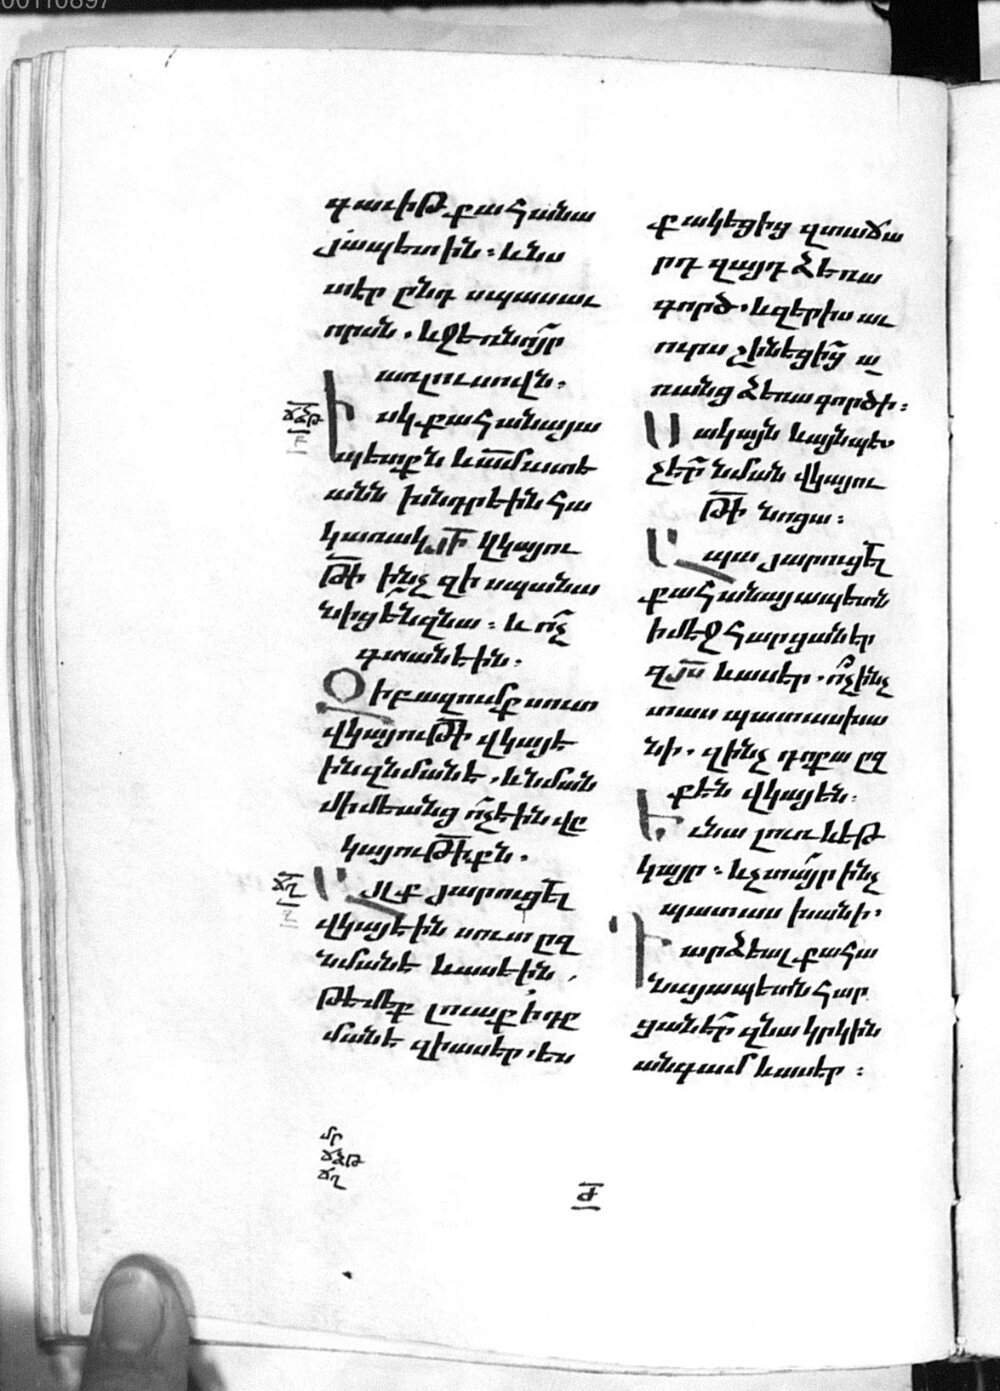 00110897
գաւիթ քահանա
յապետին։ և նս
տէր ընդ սպասաւ
որսն. և ջեռնոյր
առ լուսովն.
ՃՁԹ
Իսկ քահանայա
պետքն և ամ ատե
անն խնդրէին հա
կառակ յի վկայու
թի ինչ զի սպանա
նիցեն զնա։ և ոչ
գտանէին.
Օի բազումք սուտ
վկայութի վկայե
ին զնմանէ. և նման
միմեանց ոչ էին վը
կայութիքն.
ՃՂ
Այլք յարուցել
վկայէին սուտ ըզ
նմանէ և ասէին
թէ մեք լուաք ի դը
մանէ զի ասէր. ես
քակեցից զտաճա
րդ զայդ ձեռա
գործ. և զերիս աւ
ուրս շինեցից ա
ռանց ձեռագործի։
Սակայն և այնպէս
չէր նման վկայու
թի նոցա։
Ապա յարուցել
քահանայապետն
ի մէջ հարցանէր
զյս և ասէր. ոչինչ
տաս պատասխա
նի. զինչ դոքա ըզ
քէն վկայեն։
Եւ նա լուռ ևեթ
կայր։ և չտայր ինչ
պատասխանի.
Դարձեալ քահա
նայապետն հար
ցանէր զնա կրկին
անգամ և ասէր։
մր
ՃՁԹ
ՃՂ